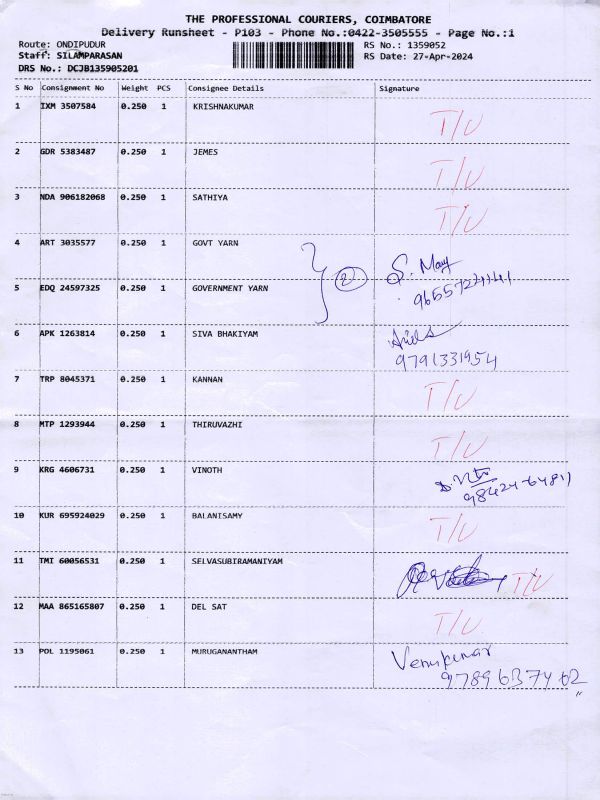 THE PROFESSIONAL COURIERS, COIMBATORE
Delivery Runsheet - P103 - Phone No.:0422-3505555 - Page No.:1
Route: ONDIPUDUR RS No.: 1359052
Staff: SILAMPARASAN RS Date: 27-Apr-2024
DRS No.: DCJB135905201
S No Consignment No Weight PCS Consignee Details Signature
1 IXM 3507584 0.250 1 KRISHNAKUMAR T/U
2 GDR 5383487 0.250 1 JEMES T/U
3 NDA 906182068 0.250 1 SATHIYA T/U
4 ART 3035577 0.250 1 GOVT YARN
2 S. Mary
5 EDQ 24597325 0.250 1 GOVERNMENT YARN
6 APK 1263814 0.250 1 SIVA BHAKIYAM
9791331954
7 TRP 8045371 0.250 1 KANNAN T/U
8 MTP 1293944 0.250 1 THIRUVAZHI T/U
9 KRG 4606731 0.250 1 VINOTH
98424-64811
10 KUR 695924029 0.250 1 BALANISAMY T/U
11 TMI 60056531 0.250 1 SELVASUBIRAMANIYAM T/U
12 MAA 865165807 0.250 1 DEL SAT T/U
13 POL 1195061 0.250 1 MURUGANANTHAM Venukumar
9789637462